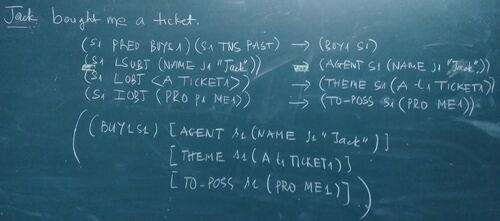 Jack bought me a ticket.
(S1 PRED BUYS1) (S1 TNS PAST) → (BUY1 S1)
(S1 LSUBJ (NAME J1 "Jack")) → (AGENT S1 (NAME J1 "Jack"))
(S1 LOBJ <A TICKET1>) → (THEME S1 (A t1 TICKET1))
(S1 IOBJ (PRO P1 ME1)) → (TO-POSS S1 (PRO ME1))
((BUY1 S1) [AGENT S1 (NAME J1 "Jack")]
[THEME S1 (A t1 TICKET1)]
[TO-POSS S1 (PRO ME1)])